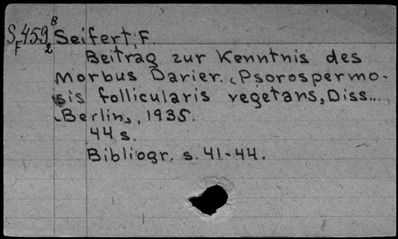 S459 8/2 Seifert, F.
F
Beitrag zur Kenntnis des
Morbus Darier. (Psorospermo-
sis follicularis vegetans, Diss...
(Berlin), 1935.
44 s.
Bibliogr. s. 41-44.